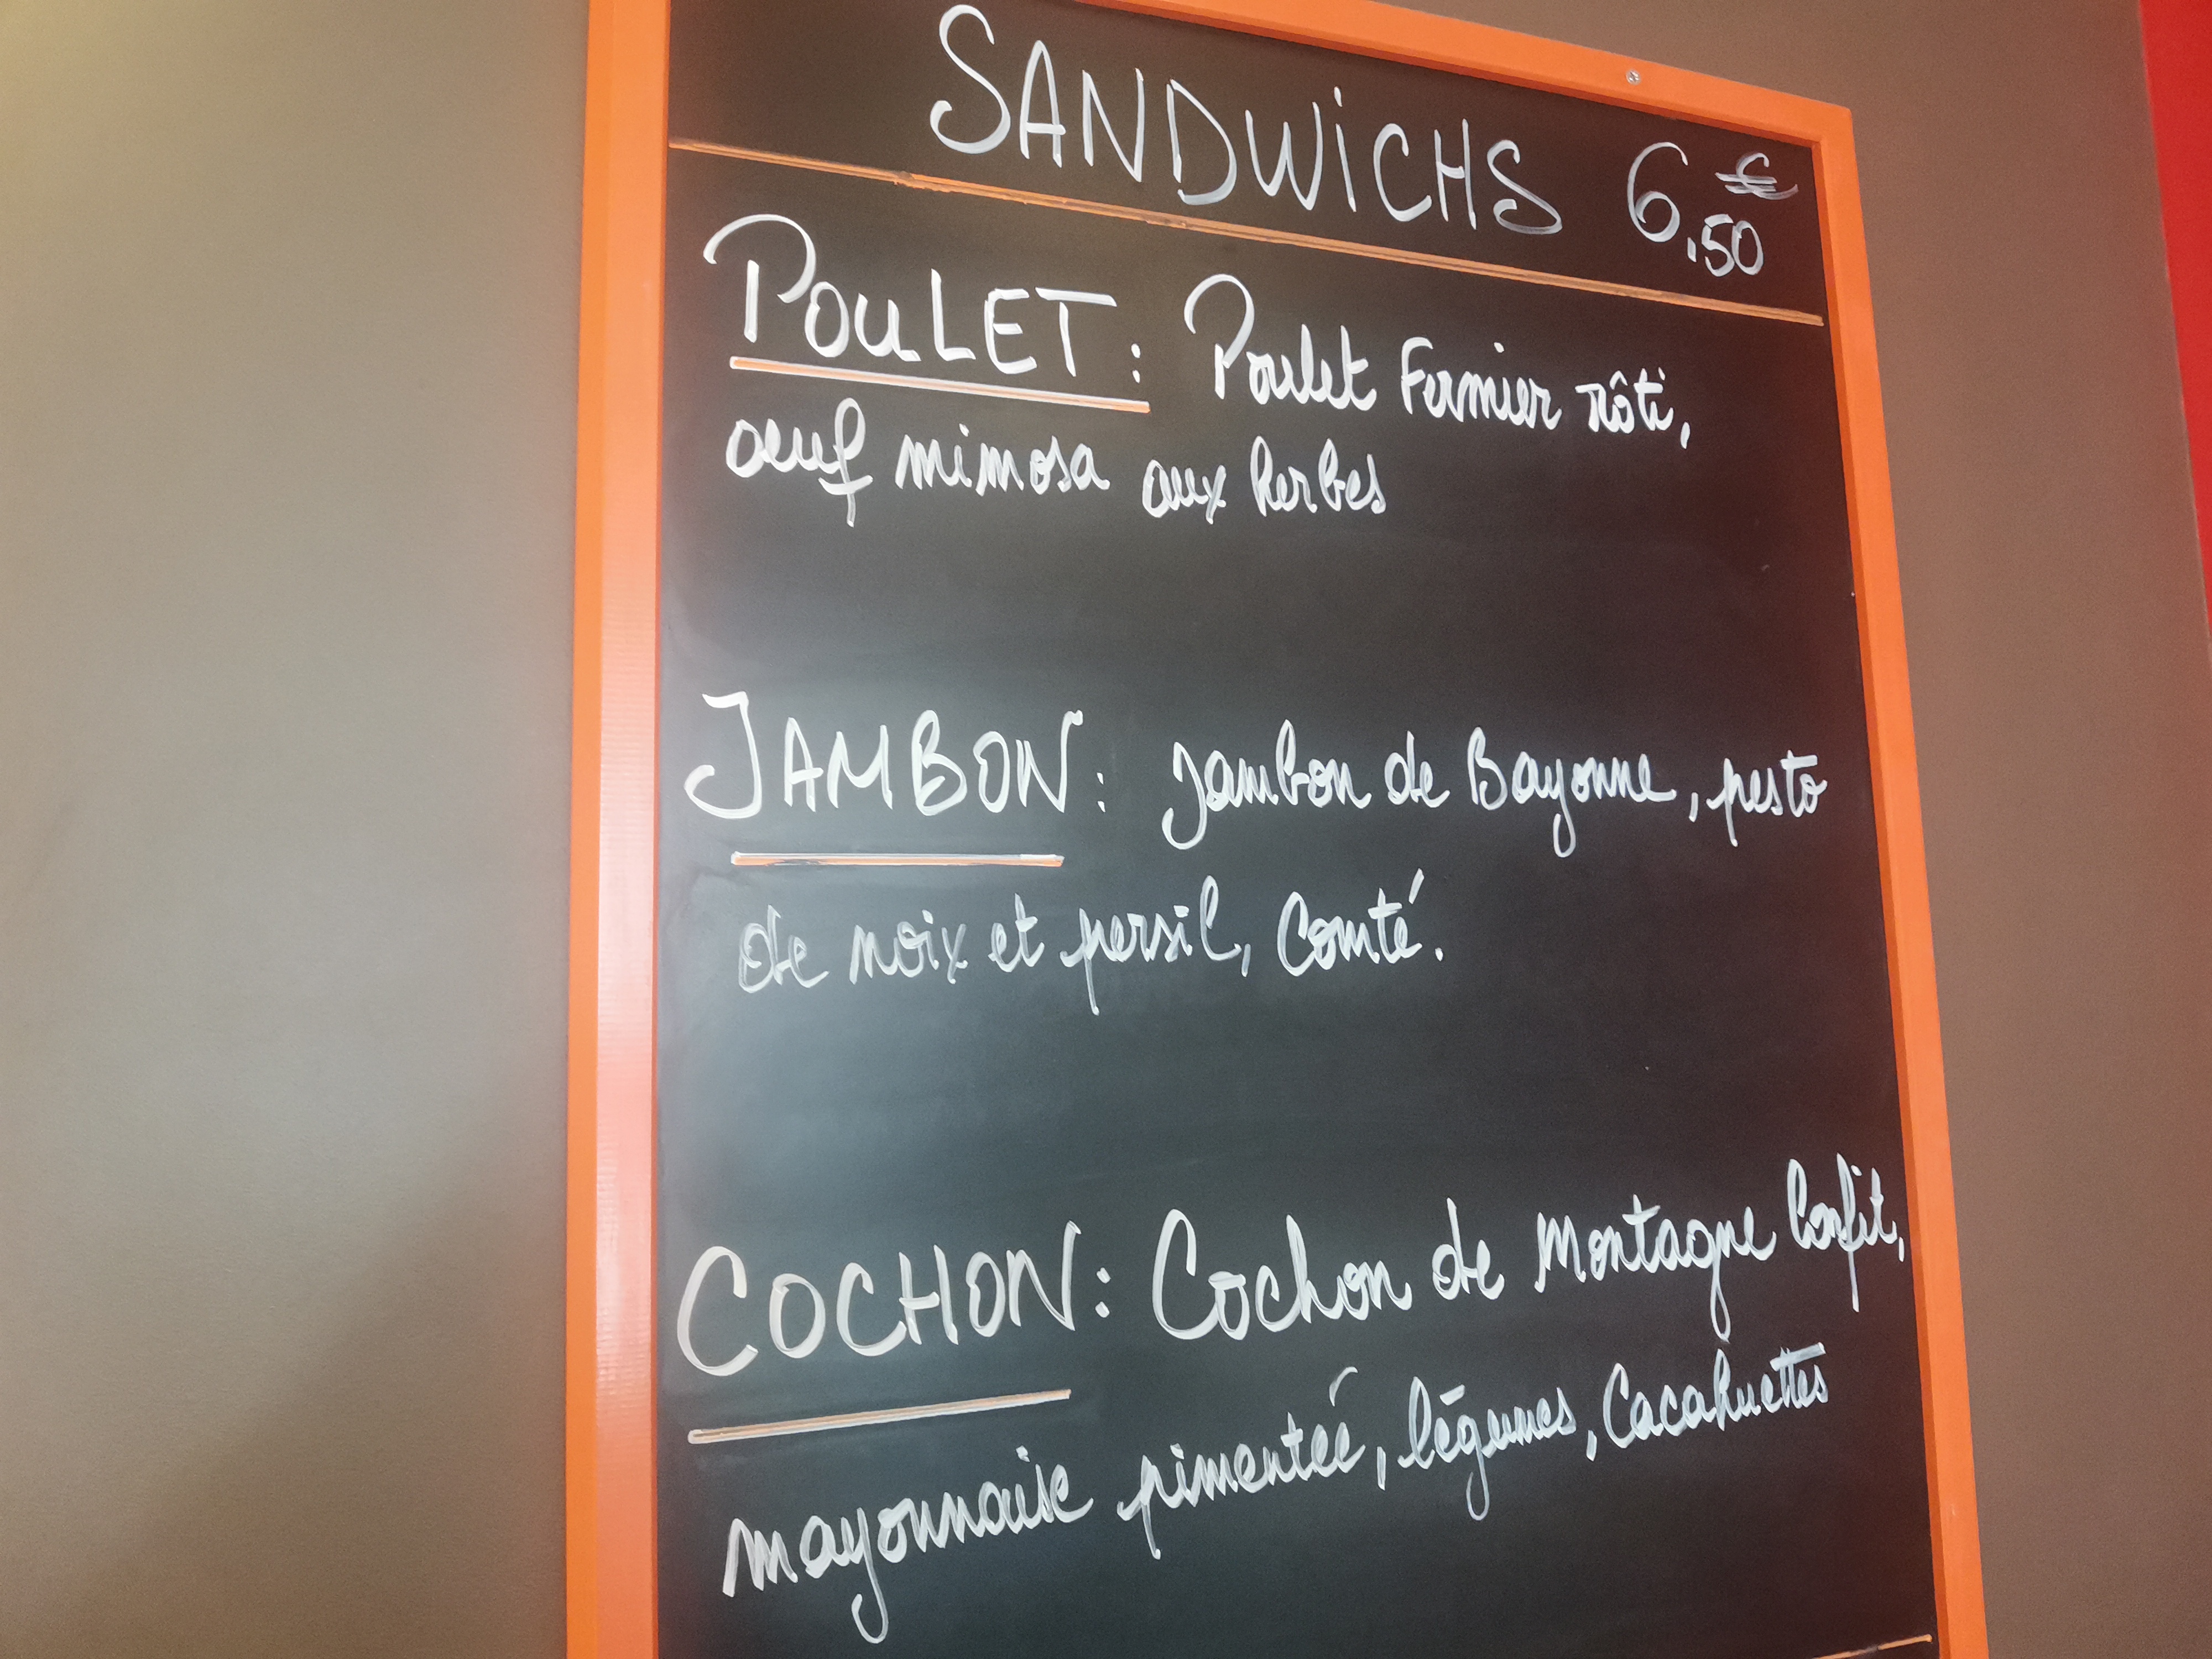 SANDWiCHS 6,50€
POULET : Poulet Fermier rôti,
oeuf mimosa aux herbes
JAMBON : jambon de Bayonne, pesto
de noix et persil, Comté.
COCHON : Cochon de Montagne Confit,
mayonnaise pimenteé, légumes, Cacahuettes